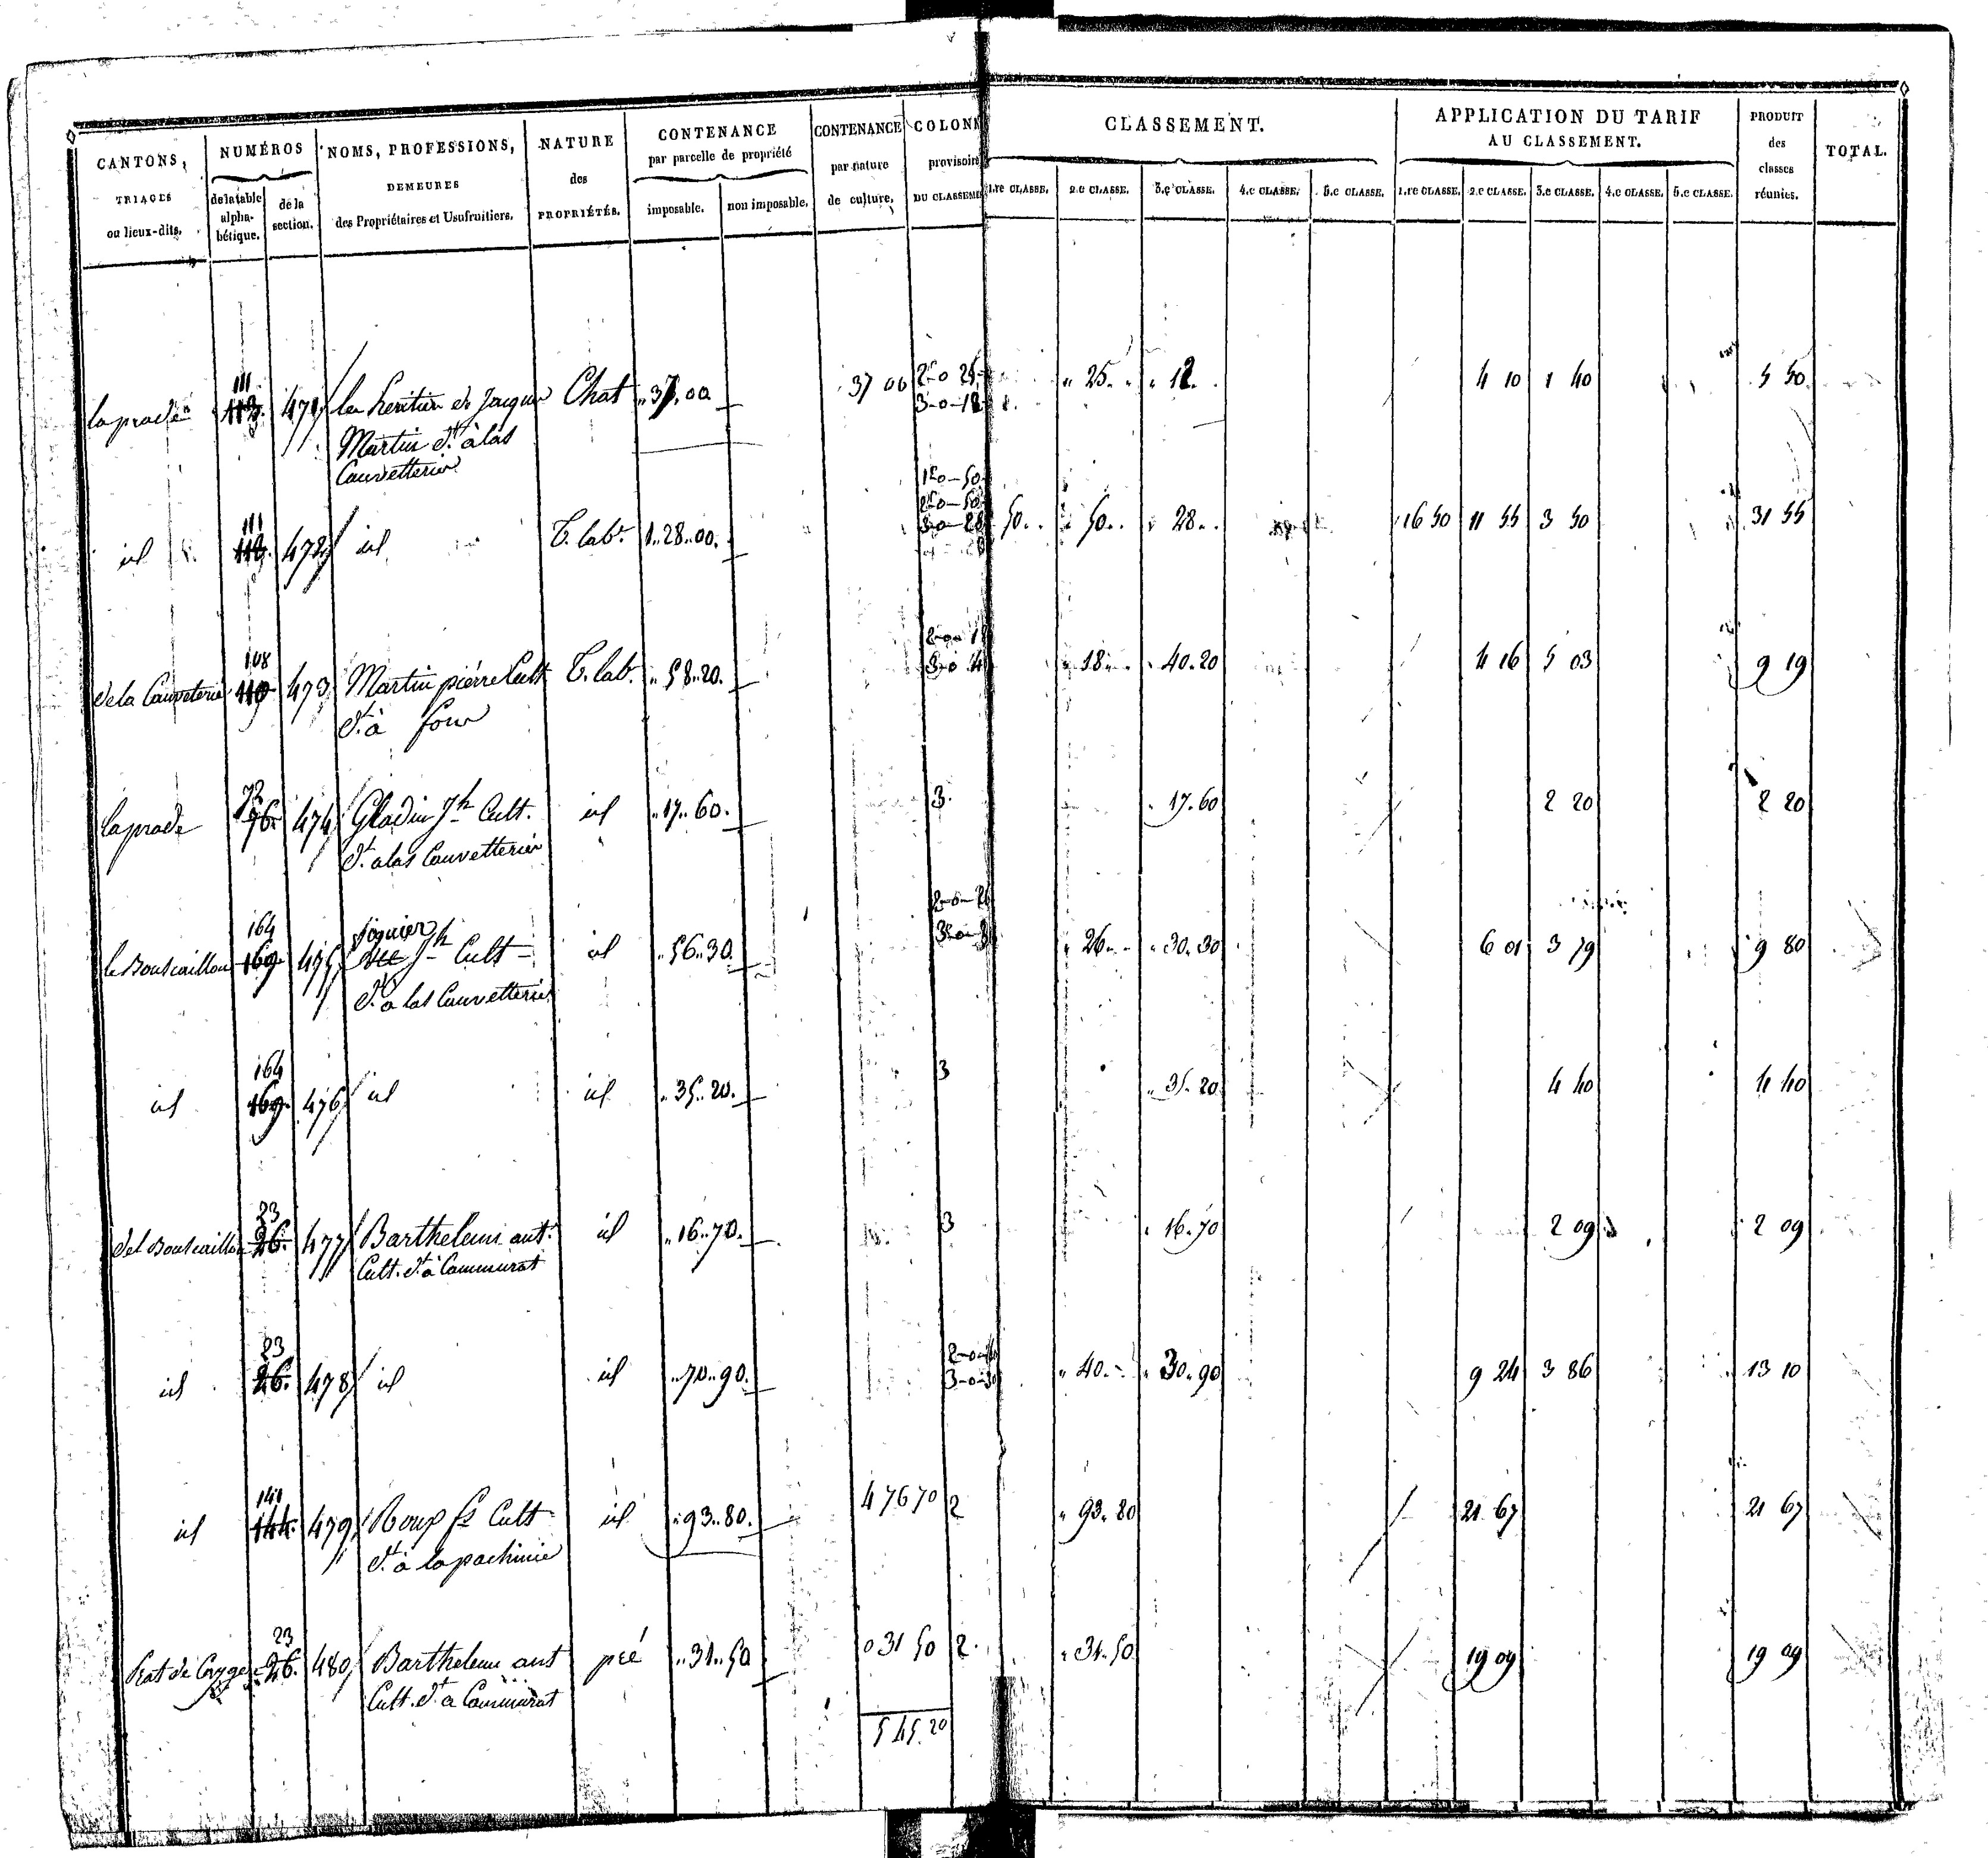 CANTONS, TRIAGES ou lieux-dits.
NUMÉROS
de la table alpha-bétique.
de la section.
NOMS, PROFESSIONS, DEMEURES des Propriétaires et Usufruitiers.
NATURE des PROPRIÉTÉS.
CONTENANCE par parcelle de propriété
imposable.
non imposable.
CONTENANCE par nature de culture.
COLONN provisoire DU CLASSEME
CLASSEMENT.
1.re CLASSE. 2.e CLASSE. 3.e CLASSE. 4.e CLASSE. 5.e CLASSE.
APPLICATION DU TARIF AU CLASSEMENT.
1.re CLASSE. 2.e CLASSE. 3.e CLASSE. 4.e CLASSE. 5.e CLASSE.
PRODUIT des classes réunies.
TOTAL.
laprade 111 113 471 les heritiers de Jacques Chat 37.00 37 00 2-0 25 3-0-12 25 12 4 10 1 40 5 50
Martin dt. à las
Couvetterier
id 111 113 472 id T. lab. 1.28.00. 1-0-50 2-0-50 3-0-28 50 50 28 16 50 11 55 3 50 31 55
de la Couveterie 108 110 473 Martin pierre Cult T. lab. 58.20. 18 40.20 4 16 5 03 9 19
dt. à four
laprade 72 76. 474 Gladin Jh Cult. id 17.60. 3. 17.60 2 20 2 20
dt. a las Couvetterier
le Bouscaillou 164 169 475 Jh Cult id 56.30. 26 30.30 6 01 3 79 9 80
dt. à las Couvetterier
id 164 169. 476 id id 35.20. 3 35.20 4 40 4 40
del Bouscaillou 23 26. 477 Barthelemi ant. id 16.70. 3 16.70 2 09 2 09
Cult. dt. à Commurat
id 23 26. 478 id id 70.90. 40 30.90 9 24 3 86 13 10
id 141 144. 479 Roux fs Cult id 93.80. 4 76 70 2 93.80 21 67 21 67
dt. à lapachinie
Prat de 23 26. 480 Barthelemi ant pré 31.50 0 31 50 2. 31.50 19 09 19 09
Cult. dt. a Commurat
5 45 20